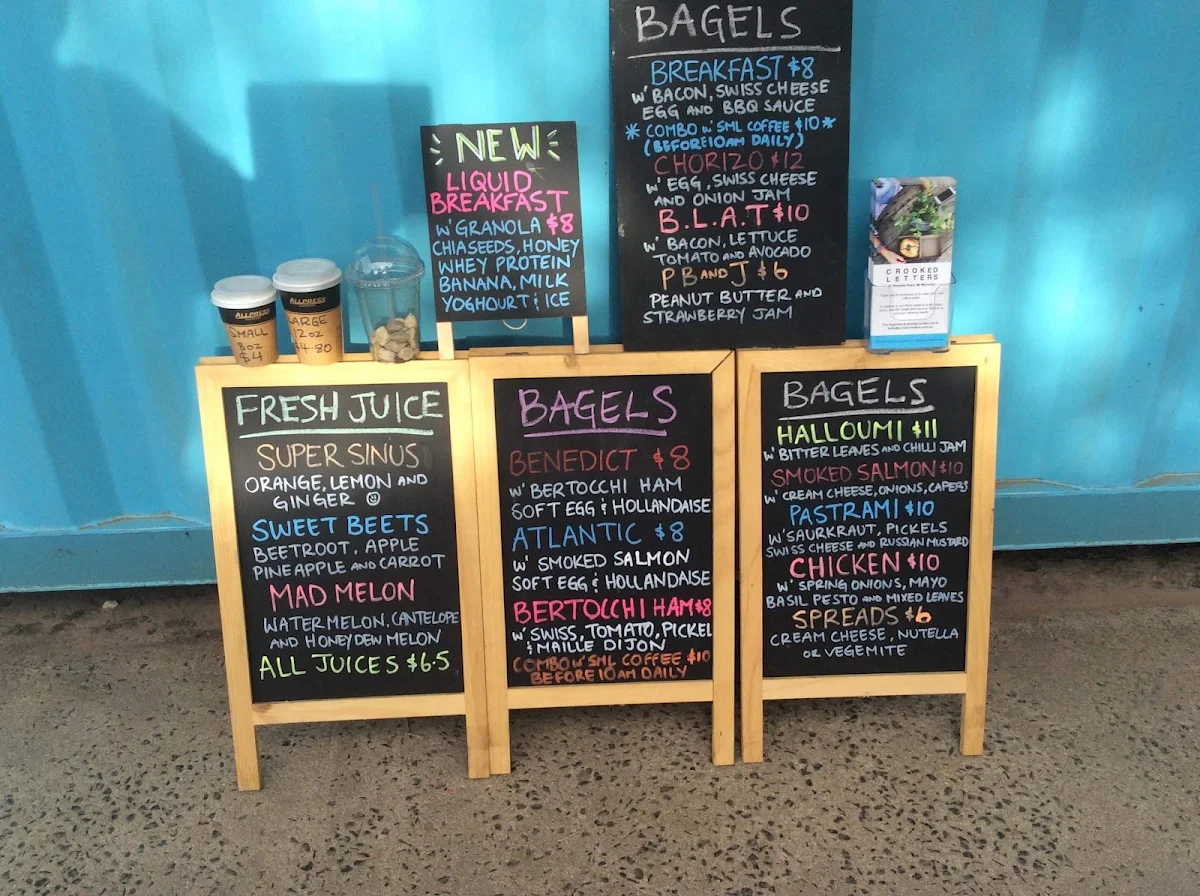 BAGELS
BREAKFAST $8
W' BACON, SWISS CHEESE
EGG AND BBQ SAUCE
* COMBO W' SML COFFEE $10 *
(BEFORE 10AM DAILY)
CHORIZO $12
W' EGG, SWISS CHEESE
AND ONION JAM
B.L.A.T $10
W' BACON, LETTUCE
TOMATO AND AVOCADO
PB AND J $6
PEANUT BUTTER AND
STRAWBERRY JAM
NEW
LIQUID
BREAKFAST
W' GRANOLA $8
CHIASEEDS, HONEY
WHEY PROTEIN
BANANA, MILK
YOGHOURT & ICE
CROOKED
LETTERS
ALLPRESS
SMALL
8oz
$4
ALLPRESS
LARGE
12oz
$4.80
FRESH JUICE
SUPER SINUS
ORANGE, LEMON AND
GINGER ☺
SWEET BEETS
BEETROOT, APPLE
PINEAPPLE AND CARROT
MAD MELON
WATERMELON, CANTELOPE
AND HONEYDEW MELON
ALL JUICES $6.5
BAGELS
BENEDICT $8
W' BERTOCCHI HAM
SOFT EGG & HOLLANDAISE
ATLANTIC $8
W' SMOKED SALMON
SOFT EGG & HOLLANDAISE
BERTOCCHI HAM $8
W' SWISS, TOMATO, PICKEL
& MAILLE DIJON
COMBO W' SML COFFEE $10
BEFORE 10AM DAILY
BAGELS
HALLOUMI $11
W' BITTER LEAVES AND CHILLI JAM
SMOKED SALMON $10
W' CREAM CHEESE, ONIONS, CAPERS
PASTRAMI $10
W' SAURKRAUT, PICKELS
SWISS CHEESE AND RUSSIAN MUSTARD
CHICKEN $10
W' SPRING ONIONS, MAYO
BASIL PESTO AND MIXED LEAVES
SPREADS $6
CREAM CHEESE, NUTELLA
OR VEGEMITE